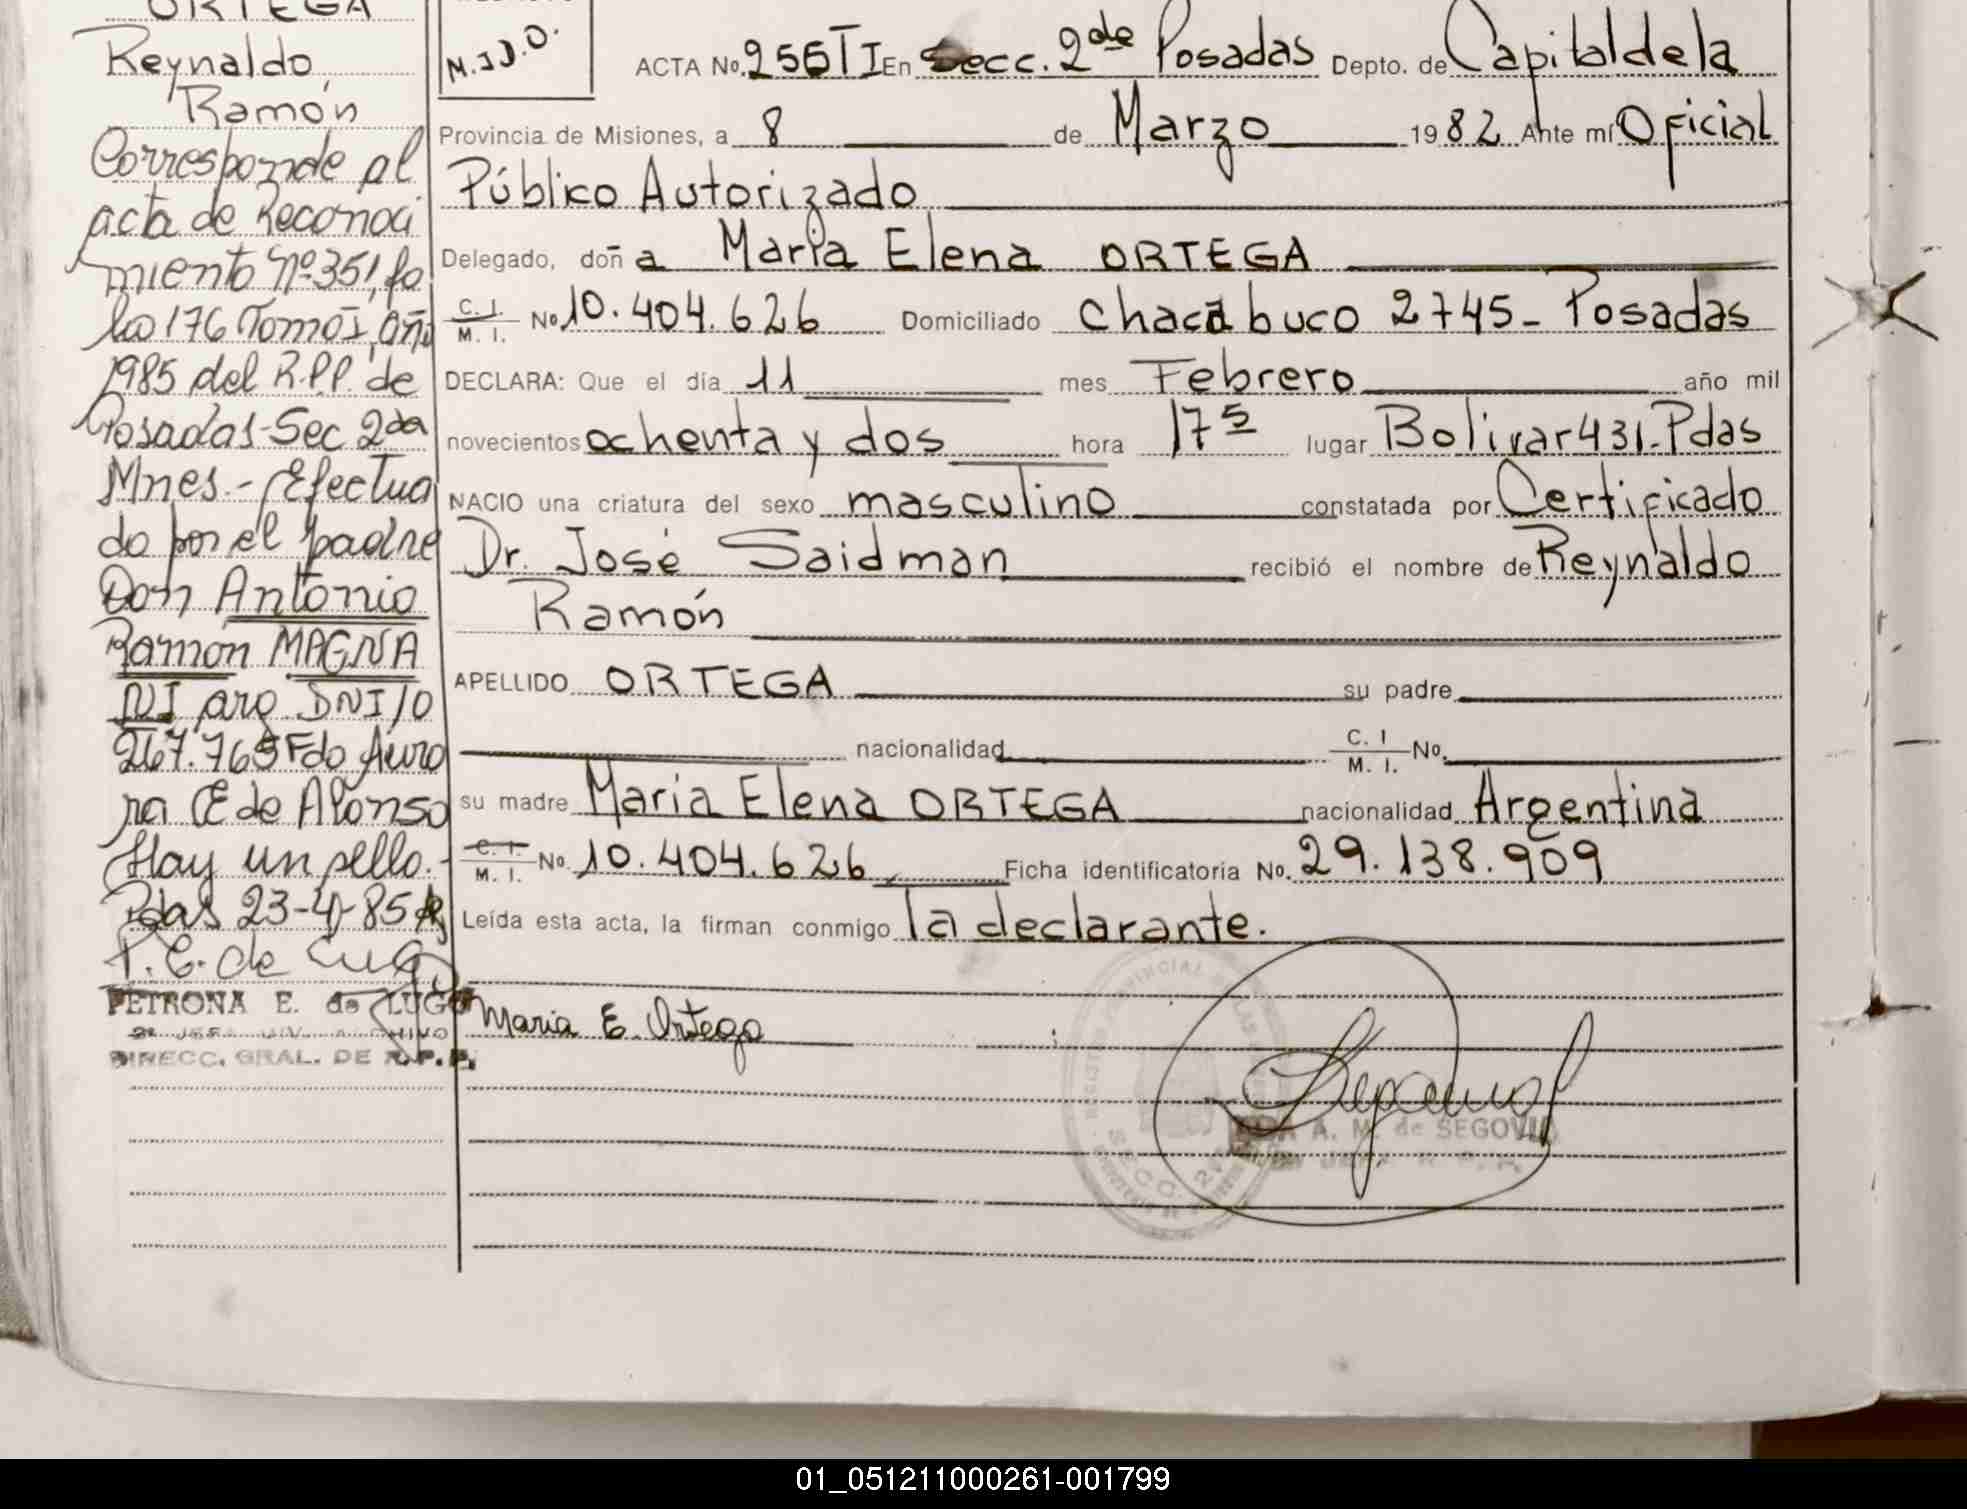 ORTEGA
Reynaldo
Ramón
Corresponde al
acta de Reconoci
miento Nº 351, fo
lio 176 Tomo I, año
1985 del R.P.P. de
Posadas-Sec 2da
Mnes.- Efectua
do por el padre
Don Antonio
Ramon MAGNA
NI arg. DNI 10
267.765 Fdo Auro
ra E de Alonso
Hay un sello.-
Pdas 23-4-85
P. E. de Lugo
PETRONA E. de LUGO
DIRECC. GRAL. DE R.P.P.
ACTA No. 255 T I En Secc. 2da Posadas Depto. de Capital de la
Provincia de Misiones, a 8 de Marzo 1982 Ante mí Oficial
Público Autorizado
Delegado, doña Maria Elena ORTEGA
C. I. M. I. No 10.404.626 Domiciliado Chacabuco 2745- Posadas
DECLARA: Que el día 11 mes Febrero año mil
novecientos ochenta y dos hora 17 5 lugar Bolivar 431-Pdas
NACIO una criatura del sexo masculino constatada por Certificado
Dr. José Saidman recibió el nombre de Reynaldo
Ramón
APELLIDO ORTEGA su padre
nacionalidad C. I M. I. No.
su madre Maria Elena ORTEGA nacionalidad Argentina
C. I. M. I. No. 10.404.626 Ficha identificatoria No. 29.138.909
Leída esta acta, la firman conmigo la declarante.
Maria E. Ortega
A. M. de SEGOVIA
01_051211000261-001799